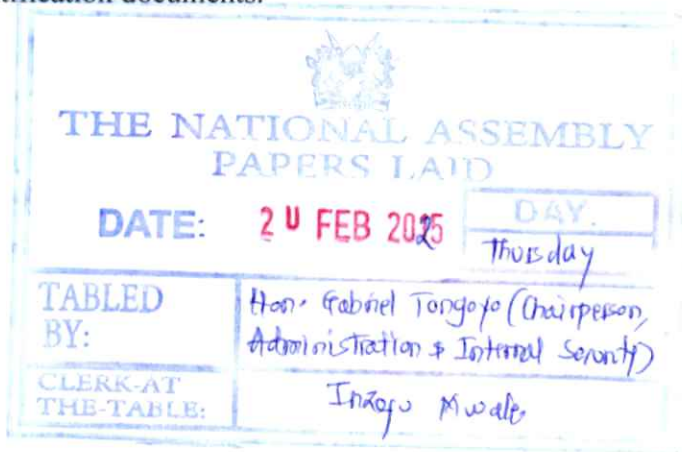 documents.
THE NATIONAL ASSEMBLY
PAPERS LAID
DATE: 20 FEB 2025
DAY.
Thursday
TABLED BY:
Hon. Gabriel Tongoyo (Chairperson,
Administration & Internal Security)
CLERK-AT THE-TABLE:
Inzofu Mwale